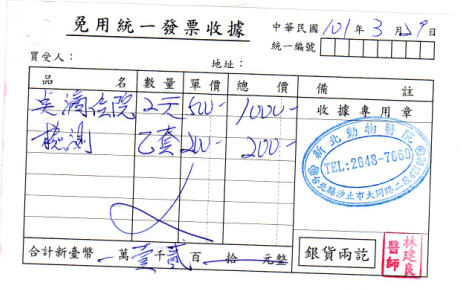 免用統一發票收據
中華民國 101 年 3 月 29 日
統一編號
買受人：
地址：
品名 數量 單價 總價 備註
點滴住院 2天 500- 1000-
檢測 乙套 200- 200-
收據專用章
新北動物醫院
TEL:2648-7663
台北縣汐止市大同路二段
合計新臺幣 萬壹千貳百 拾 元整
銀貨兩訖
林建良
醫師